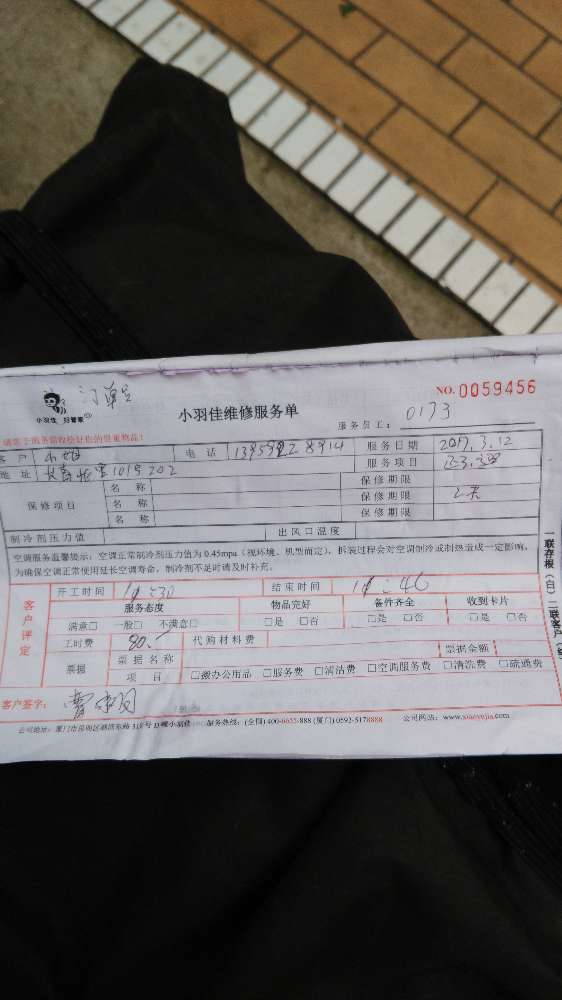 订单
小羽佳 好管家
NO. 0059456
小羽佳维修服务单
服务员工： 0173
客户 电话 服务日期 2017.3.12
地址 服务项目
保修项目 名称 保修期限
名称 保修期限
名称 保修期限
制冷剂压力值 出风口温度
空调服务温馨提示：空调正常制冷剂压力值为 0.45mpa（视环境、机型而定），拆装过程会对空调制冷或制热造成一定影响，
为确保空调正常使用延长空调寿命，制冷剂不足时请及时补充。
客户评定
开工时间 结束时间
服务态度 物品完好 备件齐全 收到卡片
满意□ 一般□ 不满意□ □是 □否 □是 □否 □是 □否
工时费 80.- 代购材料费
票据 票据名称 票据金额
项目 □缴办公用品 □服务费 □清洁费 □空调服务费 □清洗费 □疏通费
客户签字：
服务热线：(全国)400-6622-888 (厦门)0592-5178888 公司网站：www.xiaoyujia.com
一联存根（白）二联客户